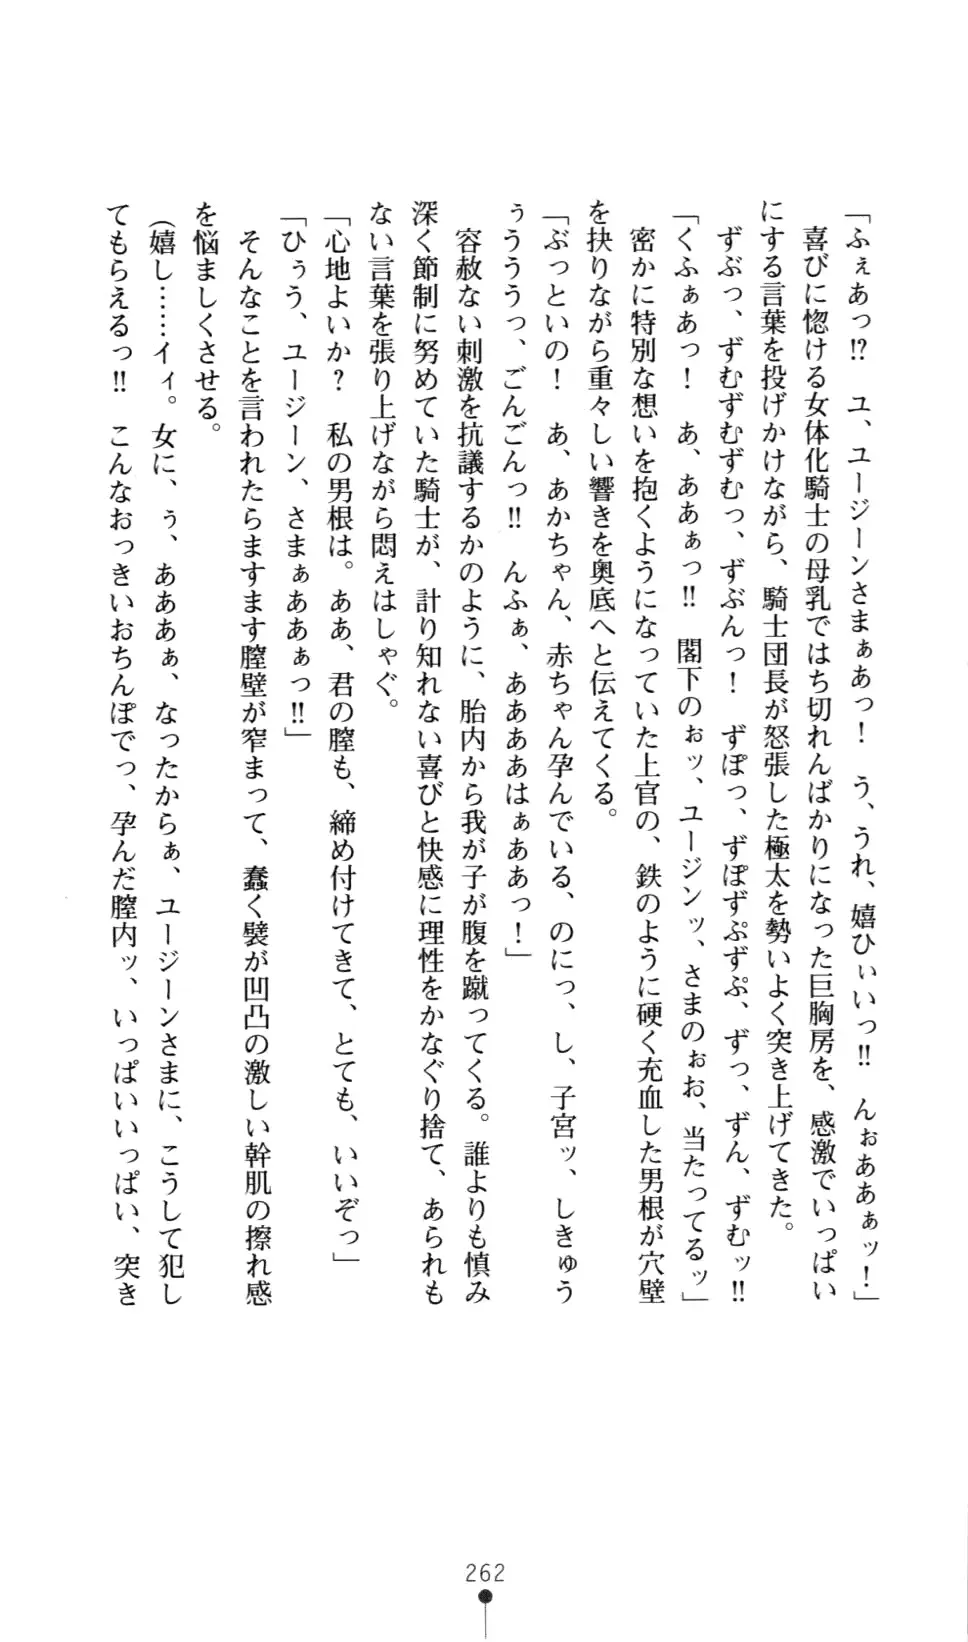 「ふぇあっ!? ユ、ユージーンさまぁあっ! う、うれ、嬉ひぃいっ!! んぉああぁッ!」
喜びに惚ける女体化騎士の母乳ではち切れんばかりになった巨胸房を、感激でいっぱい
にする言葉を投げかけながら、騎士団長が怒張した極太を勢いよく突き上げてきた。
ずぶっ、ずむずむずむっ、ずぶんっ! ずぽっ、ずぽずぷずぷ、ずっ、ずん、ずむッ!!
「くふぁあっ! あ、ああぁっ!! 閣下のぉッ、ユージンッ、さまのぉお、当たってるッ」
密かに特別な想いを抱くようになっていた上官の、鉄のように硬く充血した男根が穴壁
を抉りながら重々しい響きを奥底へと伝えてくる。
「ぶっといの! あ、あかちゃん、赤ちゃん孕んでいる、のにっ、し、子宮ッ、しきゅう
ぅうううっ、ごんごんっ!! んふぁ、あああはぁああっ!」
容赦ない刺激を抗議するかのように、胎内から我が子が腹を蹴ってくる。誰よりも慎み
深く節制に努めていた騎士が、計り知れない喜びと快感に理性をかなぐり捨て、あられも
ない言葉を張り上げながら悶えはしゃぐ。
「心地よいか? 私の男根は。ああ、君の膣も、締め付けてきて、とても、いいぞっ」
「ひぅう、ユージーン、さまぁああぁっ!!」
そんなことを言われたらますます膣壁が窄まって、蠢く襞が凹凸の激しい幹肌の擦れ感
を悩ましくさせる。
(嬉し……イィ。女に、ぅ、あああぁ、なったからぁ、ユージーンさまに、こうして犯し
てもらえるっ!! こんなおっきいおちんぽでっ、孕んだ膣内ッ、いっぱいいっぱい、突き
262